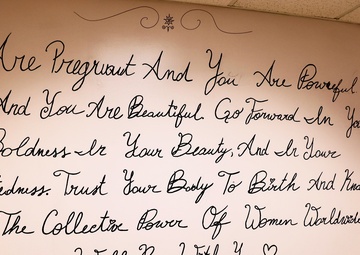 Are Pregnant And You Are Powerful
And You Are Beautiful. Go Forward In
Boldness In Your Beauty, And In Your
Trust Your Body To Birth And
The Collective Power Of Women Worldwide
With